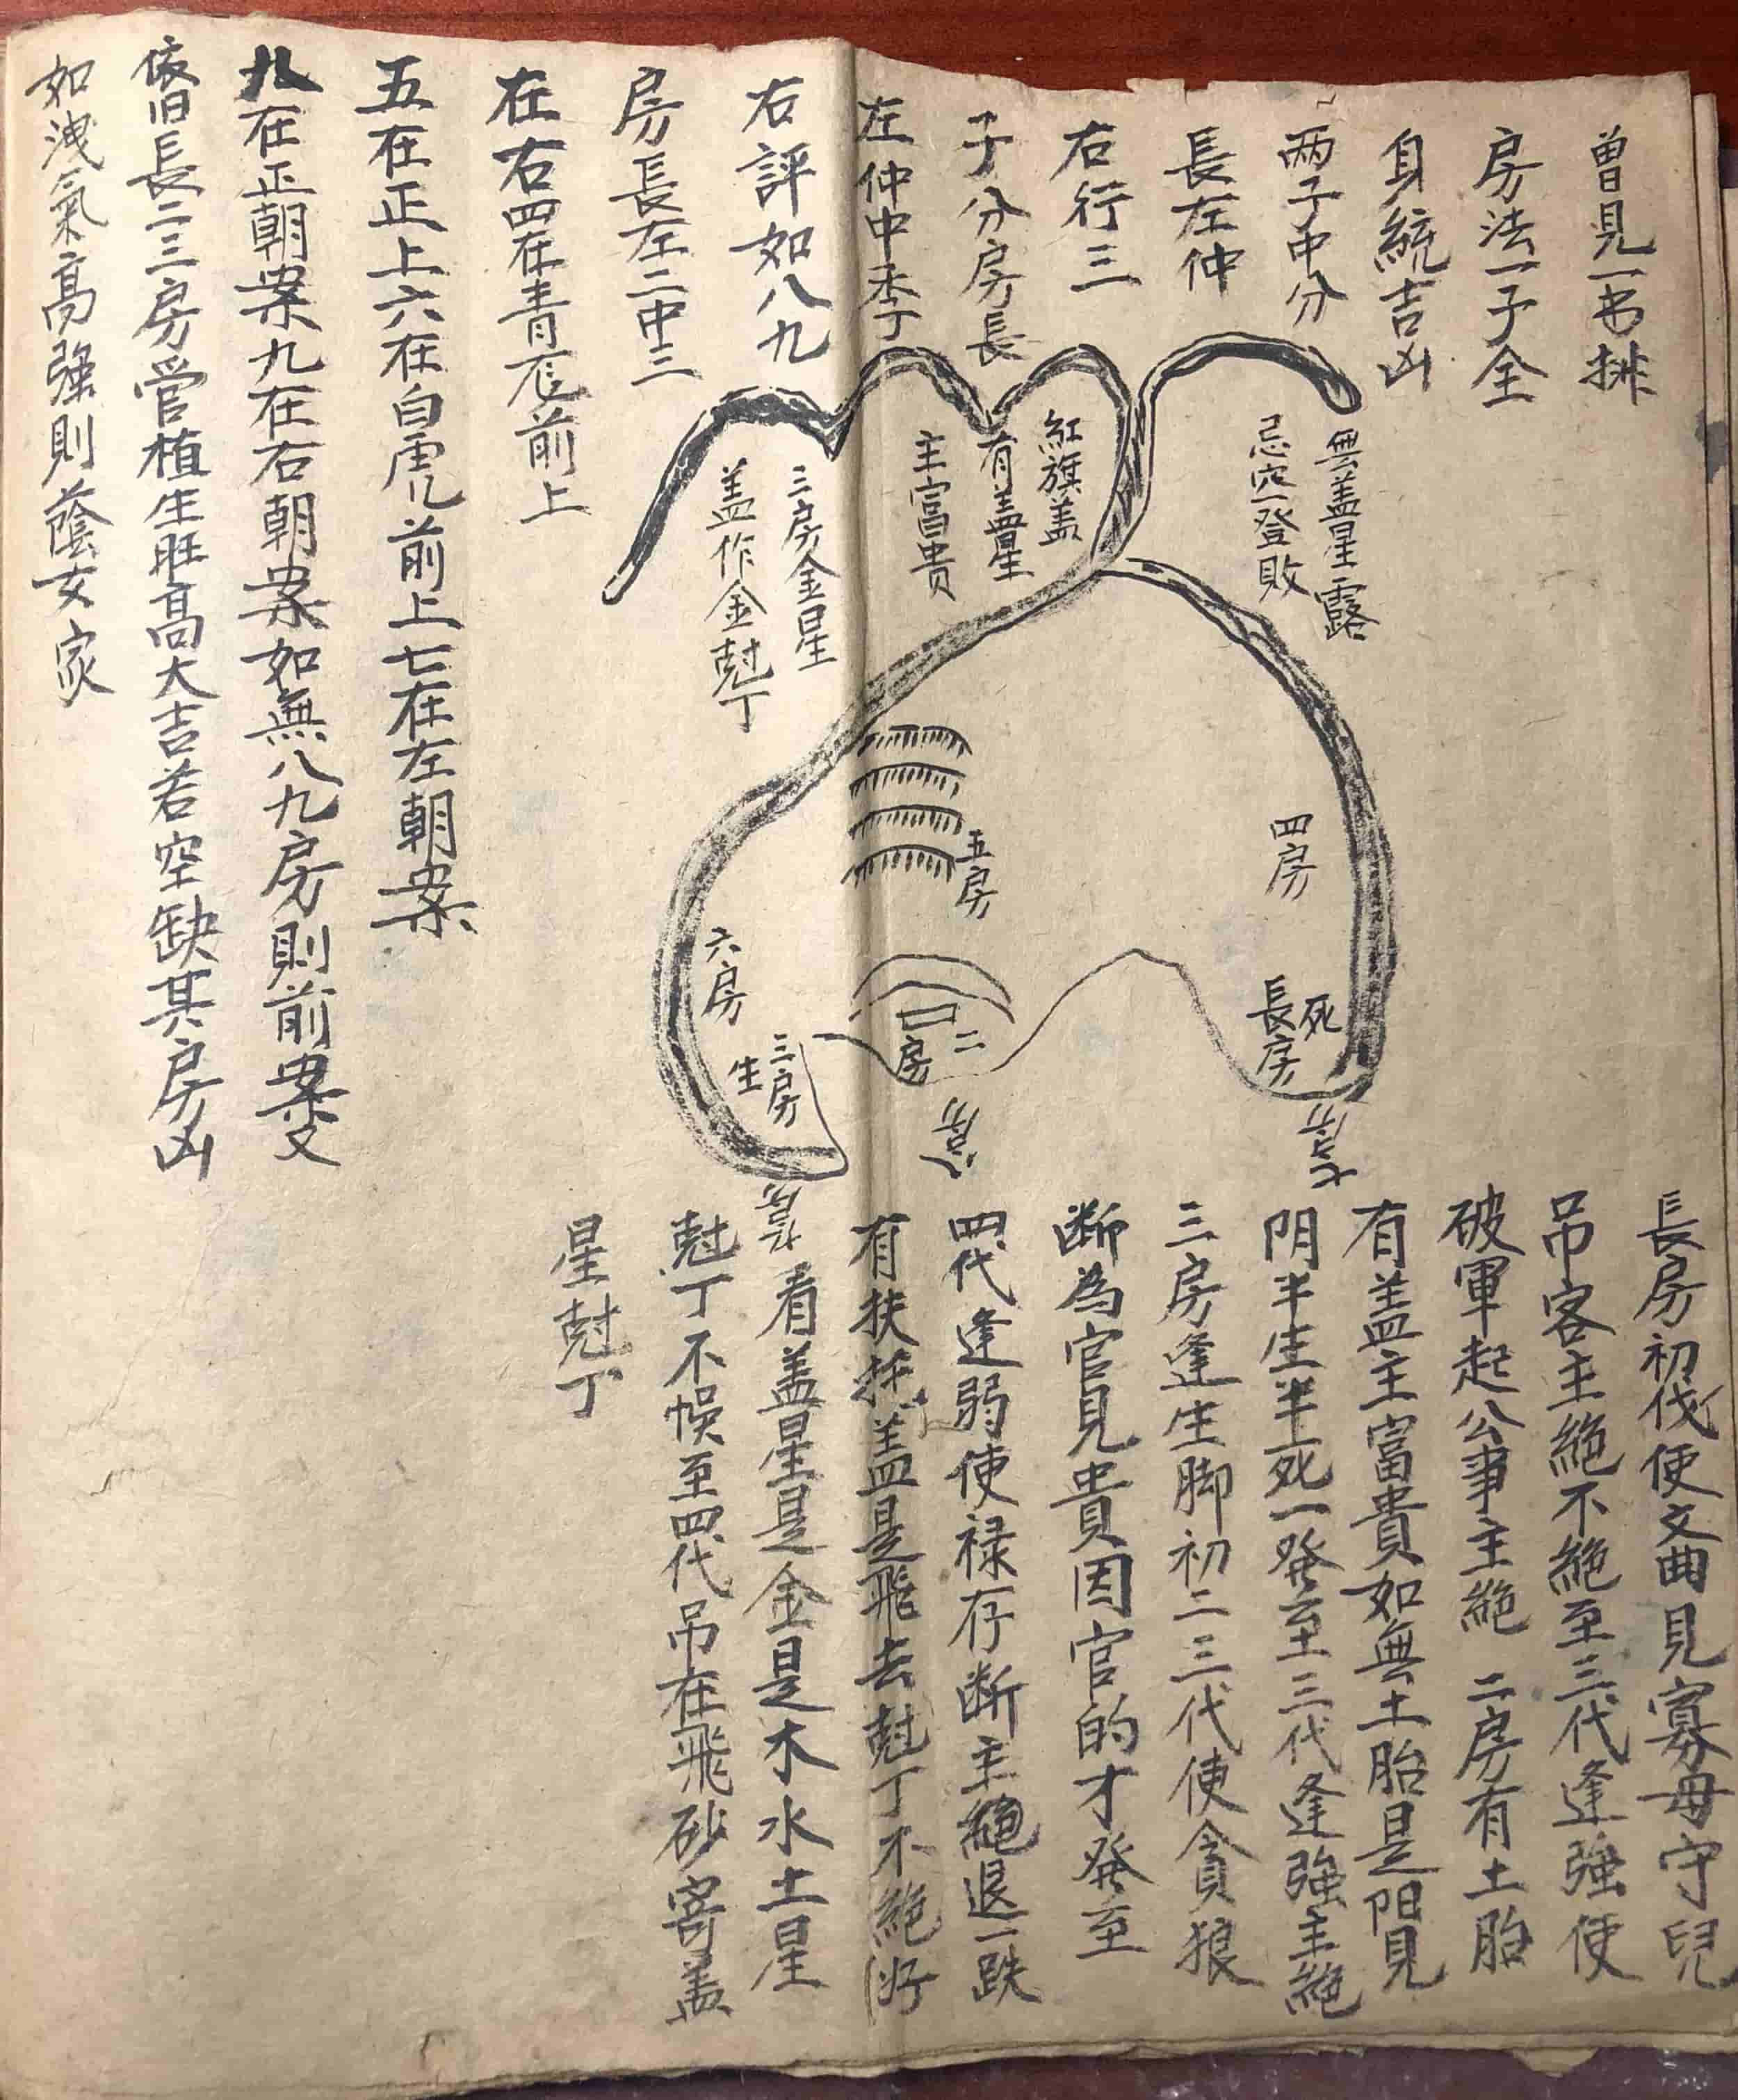 曽見一书排
房法一子全
身統吉凶
两子中分
長左仲
右行三
子分房長
左仲中季丁
右評如八九
房長左二中三
在右四在青前上
五在正上六在白虎前上七在左朝案
八在正朝案九在右朝案如無八九房則前案又
依旧長二三房管植生旺高大吉若空缺其房凶
如洩氣高強則蔭女家
無盖星露
忌穴登敗
紅旗盖
有盖星
主富貴
三房金星
盖作金尅丁
四房
五房
六房
死
長房
二
房
三房
生
長房初代使文曲見寡母守兒
吊客主絕不絕至三代逢強使
破軍起公事主絕 二房有土胎
有盖主富貴如無土胎是阳見
阴半生半死一発至三代逢強主絕
三房逢生脚初二三代使貪狼
断為官見貴因官的才発至
四代逢弱使禄存断主絕退一跌
有扶盖是飛去尅丁不絕
看盖星是金是木水土星
尅丁不悞至四代吊在飛砂寄盖
星尅丁